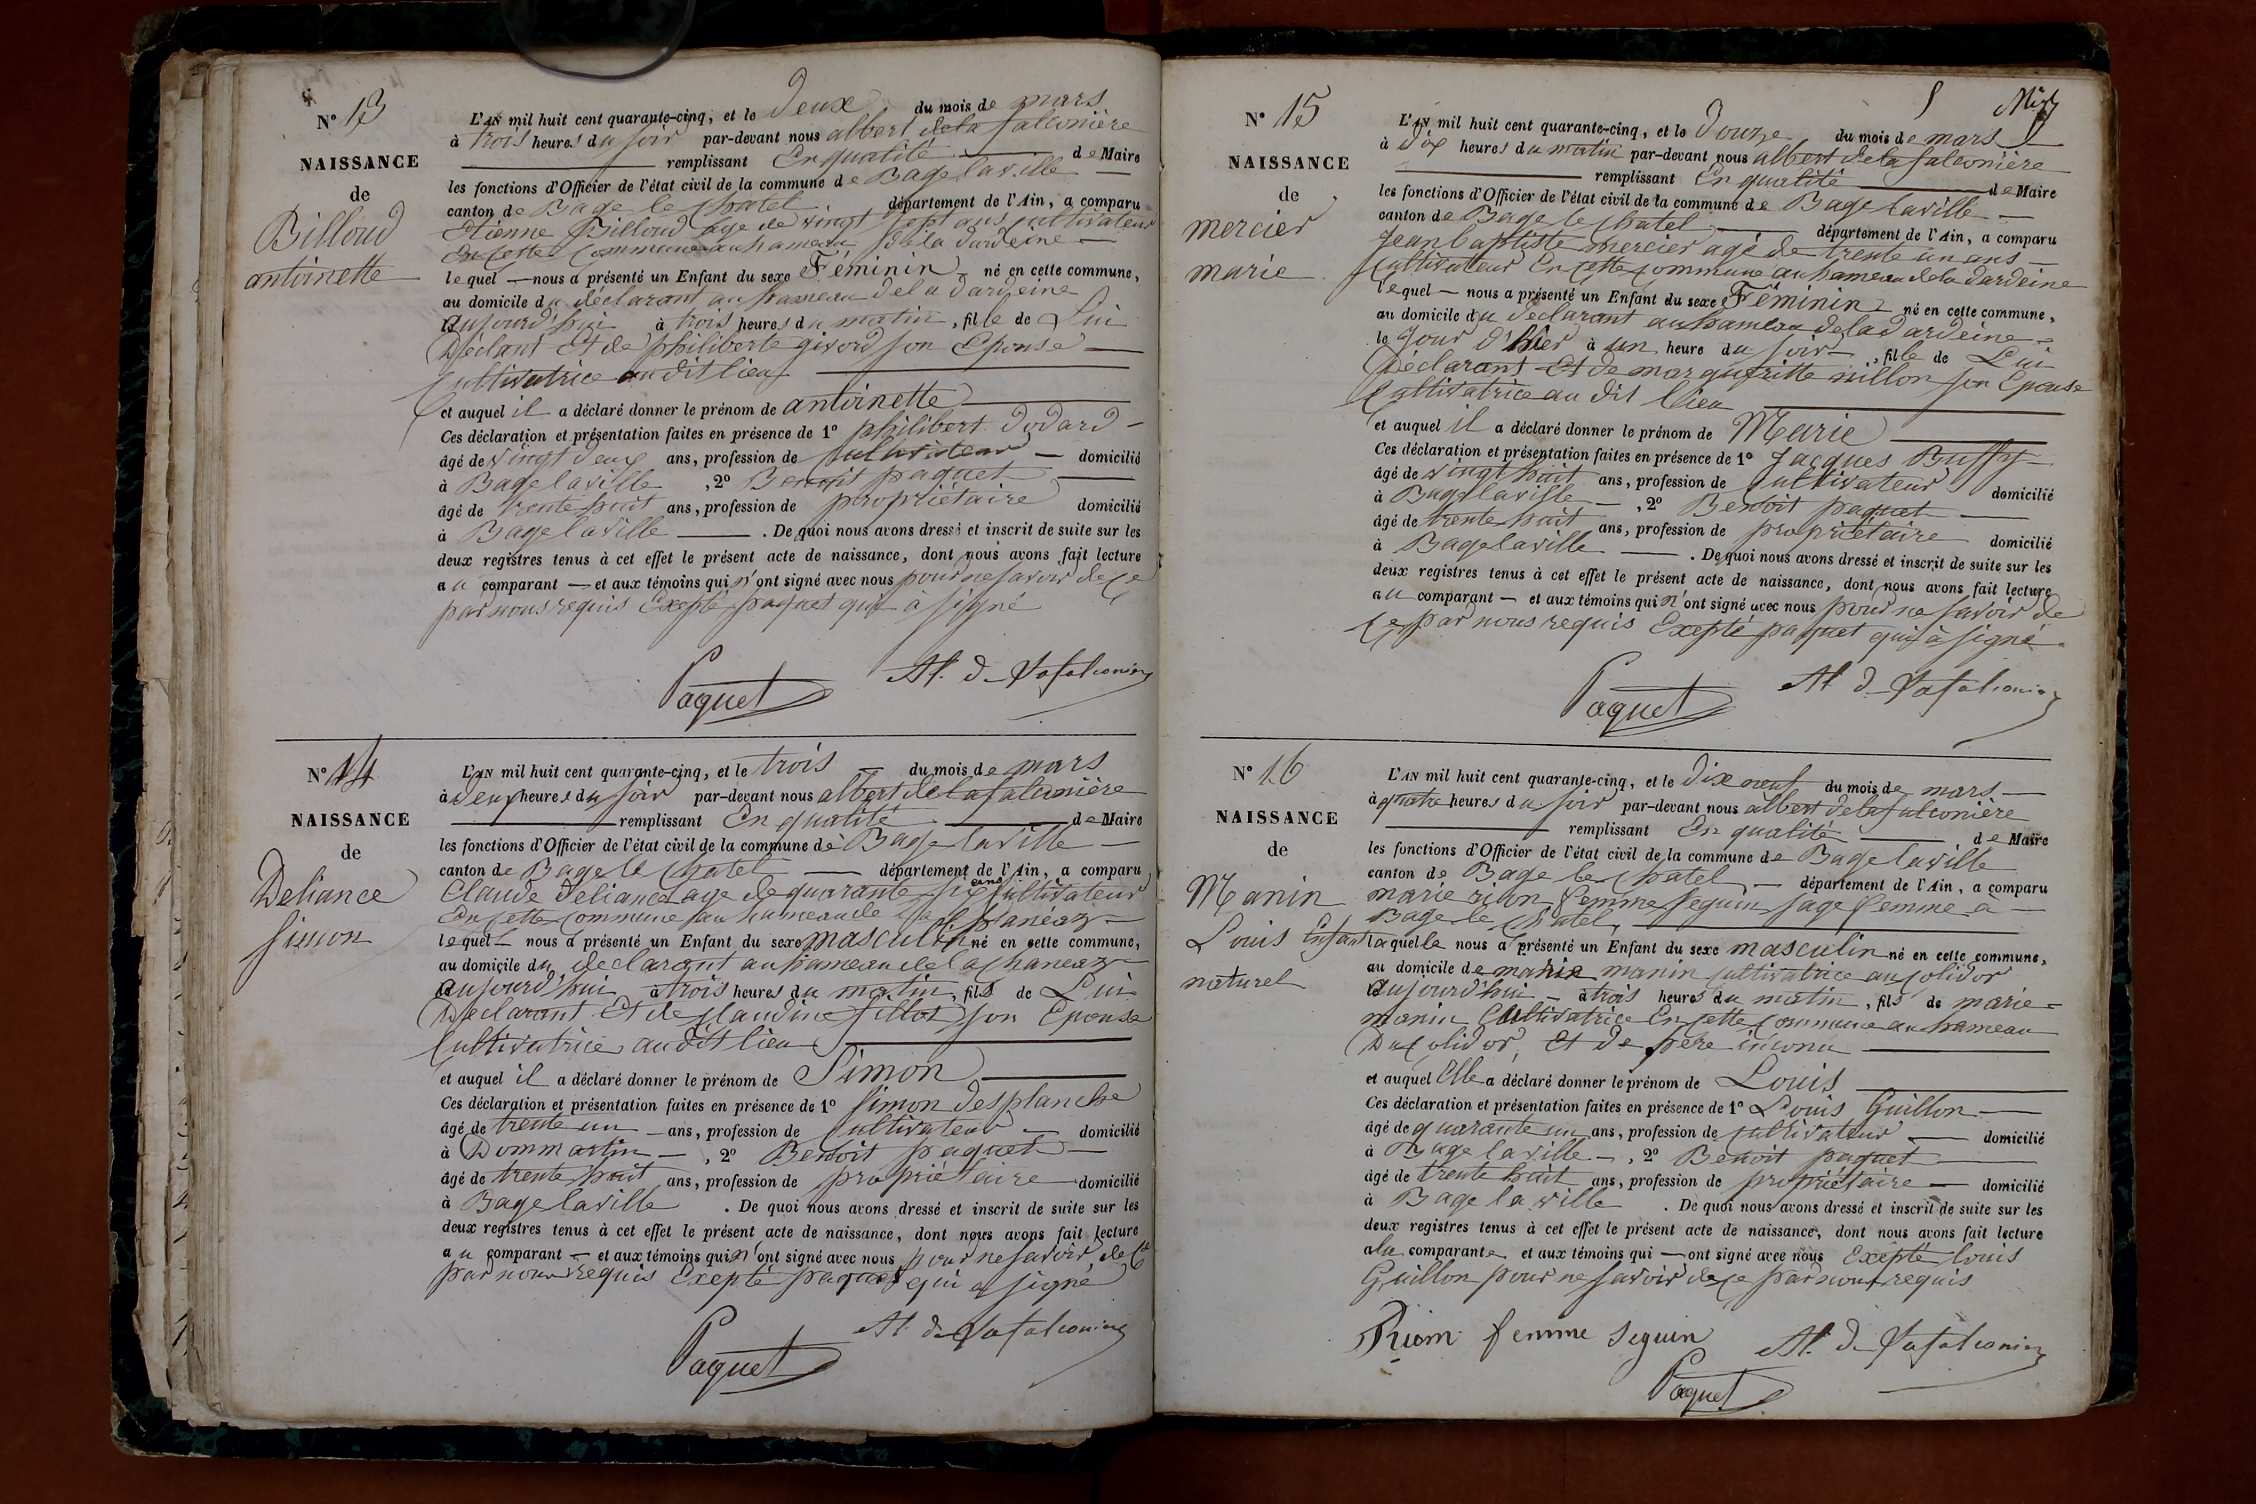 N° 13
NAISSANCE
de
Billoud
antoinette
L'AN mil huit cent quarante-cinq, et le Deux du mois de mars
à trois heures du soir par-devant nous albert dela falconière
remplissant En qualité de Maire
les fonctions d'Officier de l'état civil de la commune de Bage laville
canton de Bage le Chatel département de l'Ain, a comparu
Etienne Billoud age de vingt sept ans cultivateur
En cette commune au hameau de la dardeine
lequel nous a présenté un Enfant du sexe Féminin né en cette commune,
au domicile du déclarant au hameau de la dardeine
aujourd'hui à trois heures du matin, fille de Lui
Déclant Et de philiberte givord son Epouse
Cultivatrice au dit lieu
et auquel il a déclaré donner le prénom de antoinette
Ces déclaration et présentation faites en présence de 1° philibert Dodard
âgé de vingt deux ans, profession de Cultivateur domicilié
à Bage laville, 2° Benoit paquet
âgé de trente huit ans, profession de propriétaire domicilié
à Bage laville. De quoi nous avons dressé et inscrit de suite sur les
deux registres tenus à cet effet le présent acte de naissance, dont nous avons fait lecture
au comparant et aux témoins qui n'ont signé avec nous pour ne savoir de ce
par nous requis Exepté paquet qui à signé
Paquet Al. de Lafalconière
N° 14
NAISSANCE
de
Deliance
simon
L'AN mil huit cent quarante-cinq, et le trois du mois de mars
à Deux heures du soir par-devant nous albert de lafalconière
remplissant En qualité de Maire
les fonctions d'Officier de l'état civil de la commune de Bage laville
canton de Bage le Chatel département de l'Ain, a comparu
Claude Deliance age de quarante six ans Cultivateur
En cette commune au hameau de la chanéaz
lequel nous a présenté un Enfant du sexe masculin né en cette commune,
au domicile du declarant au hameau de la chaneaz
aujourd'hui à trois heures du matin, fils de Lui
Declarant Et de Claudine fillot son Epouse
Cultivatrice au dit lieu
et auquel il a déclaré donner le prénom de Simon
Ces déclaration et présentation faites en présence de 1° simon desplanche
âgé de trente un ans, profession de Cultivateur domicilié
à Dommartin, 2° Benoit paquet
âgé de trente huit ans, profession de propriétaire domicilié
à Bage laville. De quoi nous avons dressé et inscrit de suite sur les
deux registres tenus à cet effet le présent acte de naissance, dont nous avons fait lecture
au comparant et aux témoins qui n'ont signé avec nous pour ne savoir de ce
par nous requis Exepté paquet qui a signé
Paquet Al. de Lafalconière
5
N° 15
NAISSANCE
de
mercier
marie
L'AN mil huit cent quarante-cinq, et le Douze du mois de mars
à Dix heures du matin par-devant nous albert de la falconière
remplissant En qualité de Maire
les fonctions d'Officier de l'état civil de la commune de Bage laville
canton de Bage le Chatel département de l'Ain, a comparu
Jean baptiste mercier agé de trente un ans
Cultivateur En cette commune au hameau de la dardeine
lequel nous a présenté un Enfant du sexe Féminin né en cette commune,
au domicile du déclarant au hameau de la dardeine
le Jour D'hier à un heure du soir, fille de Lui
Déclarant Et de marguеritte nillon son Epouse
Cultivatrice au dit lieu
et auquel il a déclaré donner le prénom de Marie
Ces déclaration et présentation faites en présence de 1° Jacques Buffy
âgé de vingt huit ans, profession de Cultivateur domicilié
à Bage laville, 2° Benoit paquet
âgé de trente huit ans, profession de propriétaire domicilié
à Bage laville. De quoi nous avons dressé et inscrit de suite sur les
deux registres tenus à cet effet le présent acte de naissance, dont nous avons fait lecture
au comparant et aux témoins qui n'ont signé avec nous pour ne savoir de
ce par nous requis Exepté paquet qui à signé
Paquet Al de Lafalconière
N° 16
NAISSANCE
de
Manin
Louis Enfant
naturel
L'AN mil huit cent quarante-cinq, et le Dix neuf du mois de mars
à quatre heures du soir par-devant nous albert de la falconière
remplissant En qualité de Maire
les fonctions d'Officier de l'état civil de la commune de Bage laville
canton de Bage le Chatel département de l'Ain, a comparu
marie rion femme seguin sage femme à
Bage le Chatel
laquelle nous a présenté un Enfant du sexe masculin né en cette commune,
au domicile de marie manin cultivatrice au colidor
aujourd'hui à trois heures du matin, fils de marie
manin Cultivatrice En cette commune au hameau
Du colidor, Et De père inconu
et auquel Elle a déclaré donner le prénom de Louis
Ces déclaration et présentation faites en présence de 1° Louis Guillon
âgé de quarante un ans, profession de cultivateur domicilié
à Bage laville, 2° Benoit paquet
âgé de trente huit ans, profession de propriétaire domicilié
à Bage la ville. De quoi nous avons dressé et inscrit de suite sur les
deux registres tenus à cet effet le présent acte de naissance, dont nous avons fait lecture
à la comparante et aux témoins qui ont signé avec nous Exepté Louis
Guillon pour ne savoir de ce par nous requis
Riom femme seguin Al. de Lafalconière
Paquet